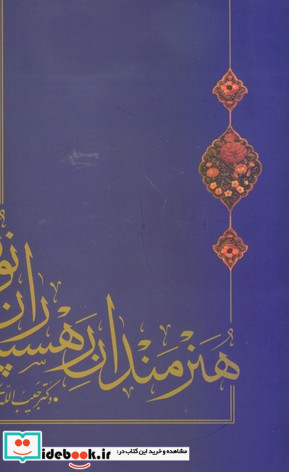 هنرمندان رهسپر
ران نو
دکتر حبیب‌اللّه
idebook.ir
مشاهده و خرید این کتاب در: